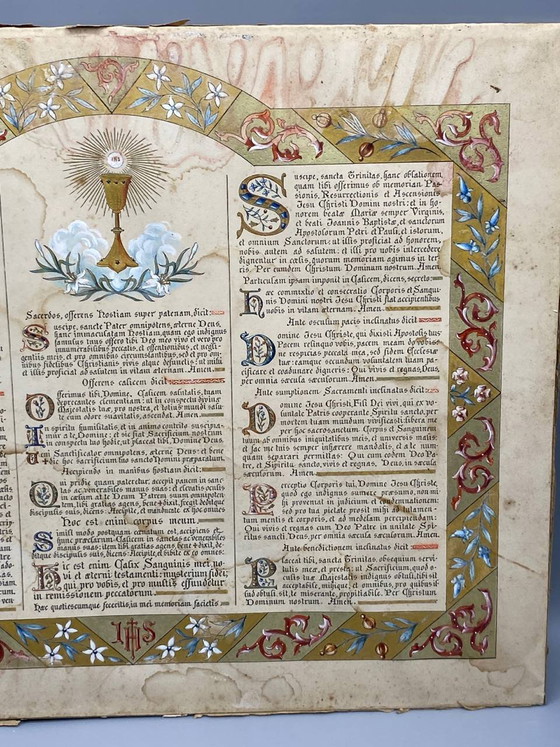 Sacerdos, offerens Hostiam super patenam, dicit:
Suscipe, sancte Pater omnipotens, æterne Deus,
hanc immaculatam Hostiam, quam ego indignus
famulus tuus offero tibi Deo meo vivo et vero pro
innumerabilibus peccatis, et offensionibus, et negli-
gentiis meis, et pro omnibus circumstantibus, sed et pro om-
nibus fidelibus Christianis vivis atque defunctis: ut mihi
et illis proficiat ad salutem in vitam æternam. Amen.
Offerens calicem dicit:
Offerimus tibi, Domine, Calicem salutaris, tuam
deprecantes clementiam: ut in conspectu divinæ
Majestatis tuæ, pro nostra, et totius mundi salu-
te cum odore suavitatis, ascendat. Amen.
In spiritu humilitatis, et in animo contrito suscipia-
mur a te, Domine: et sic fiat Sacrificium nostrum
in conspectu tuo hodie, ut placeat tibi, Domine Deus.
Veni Sanctificator omnipotens, æterne Deus: et bene
dic hoc sacrificium tuo sancto Nomini præparatum.
Accipiendo in manibus hostiam dicit:
Qui pridie quam pateretur, accepit panem in sanc-
tas ac venerabiles manus suas, et elevatis oculis
in cœlum ad te Deum Patrem suum omnipoten-
tem, tibi gratias agens, bene dixit, fregit deditque
discipulis suis, dicens: Accipite, et manducate ex hoc omnes:
Hoc est enim corpus meum.
Simili modo postquam cœnatum est, accipiens et
hunc præclarum Calicem in sanctas ac venerabiles
manus suas: item tibi gratias agens, bene dixit, de-
ditque discipulis suis, dicens: Accipite, et bibite ex eo omnes:
Hic est enim Calix Sanguinis mei, no-
vi et æterni testamenti: mysterium fidei;
qui pro vobis, et pro multis effundetur
in remissionem peccatorum.
Hæc quotiescumque feceritis, in mei memoriam facietis
IHS
Suscipe, sancta Trinitas, hanc oblationem,
quam tibi offerimus ob memoriam Pas-
sionis, Resurrectionis et Ascensionis
Jesu Christi Domini nostri: et in ho-
norem beatæ Mariæ semper Virginis,
et beati Joannis Baptistæ, et sanctorum
Apostolorum Petri et Pauli, et istorum,
et omnium Sanctorum: ut illis proficiat ad honorem,
nobis autem ad salutem: et illi pro nobis intercedere
dignentur in cœlis, quorum memoriam agimus in ter-
ris. Per eumdem Christum Dominum nostrum. Amen.
Particulam ipsam imponit in Calicem, dicens, secreto:
Hæc commixtio et consecratio Corporis et Sangui-
nis Domini nostri Jesu Christi fiat accipientibus
nobis in vitam æternam. Amen.
Ante osculum pacis inclinatus dicit
Domine Jesu Christe, qui dixisti Apostolis tuis:
Pacem relinquo vobis, pacem meam do vobis:
ne respicias peccata mea, sed fidem Ecclesiæ
tuæ: eamque secundum voluntatem tuam pa-
cificare et coadunare digneris: Qui vivis et regnas Deus,
per omnia sæcula sæculorum. Amen.
Ante sumptionem Sacramenti inclinatus dicit:
Domine Jesu Christe, Fili Dei vivi, qui ex vo-
luntate Patris cooperante Spiritu sancto, per
mortem tuam mundum vivificasti: libera me
per hoc sacrosanctum Corpus et Sanguinem
tuum, ab omnibus iniquitatibus meis, et universis malis
et fac me tuis semper inhærere mandatis, et a te num-
quam separari permittas: Qui cum eodem Deo Pa-
tre, et Spiritu sancto, vivis et regnas, Deus, in sæcula
sæculorum. Amen.
Perceptio Corporis tui, Domine Jesu Christe,
quod ego indignus sumere præsumo, non mi
hi proveniat in judicium et condemnationem:
sed pro tua pietate prosit mihi ad tutamen-
tum mentis et corporis, et ad medelam percipiendam:
Qui vivis et regnas cum Deo Patre in unitate Spi-
ritus sancti, Deus, per omnia sæcula sæculorum. Amen.
Ante benedictionem inclinatus dicit
Placeat tibi, sancta Trinitas, obsequium servitutis
meæ, et præsta; ut Sacrificium, quod o-
culis tuæ Majestatis indignus obtuli, tibi sit
acceptabile, mihique, et omnibus, pro quibus il-
lud obtuli, sit, te miserante, propitiabile. Per Christum
Dominum nostrum. Amen.